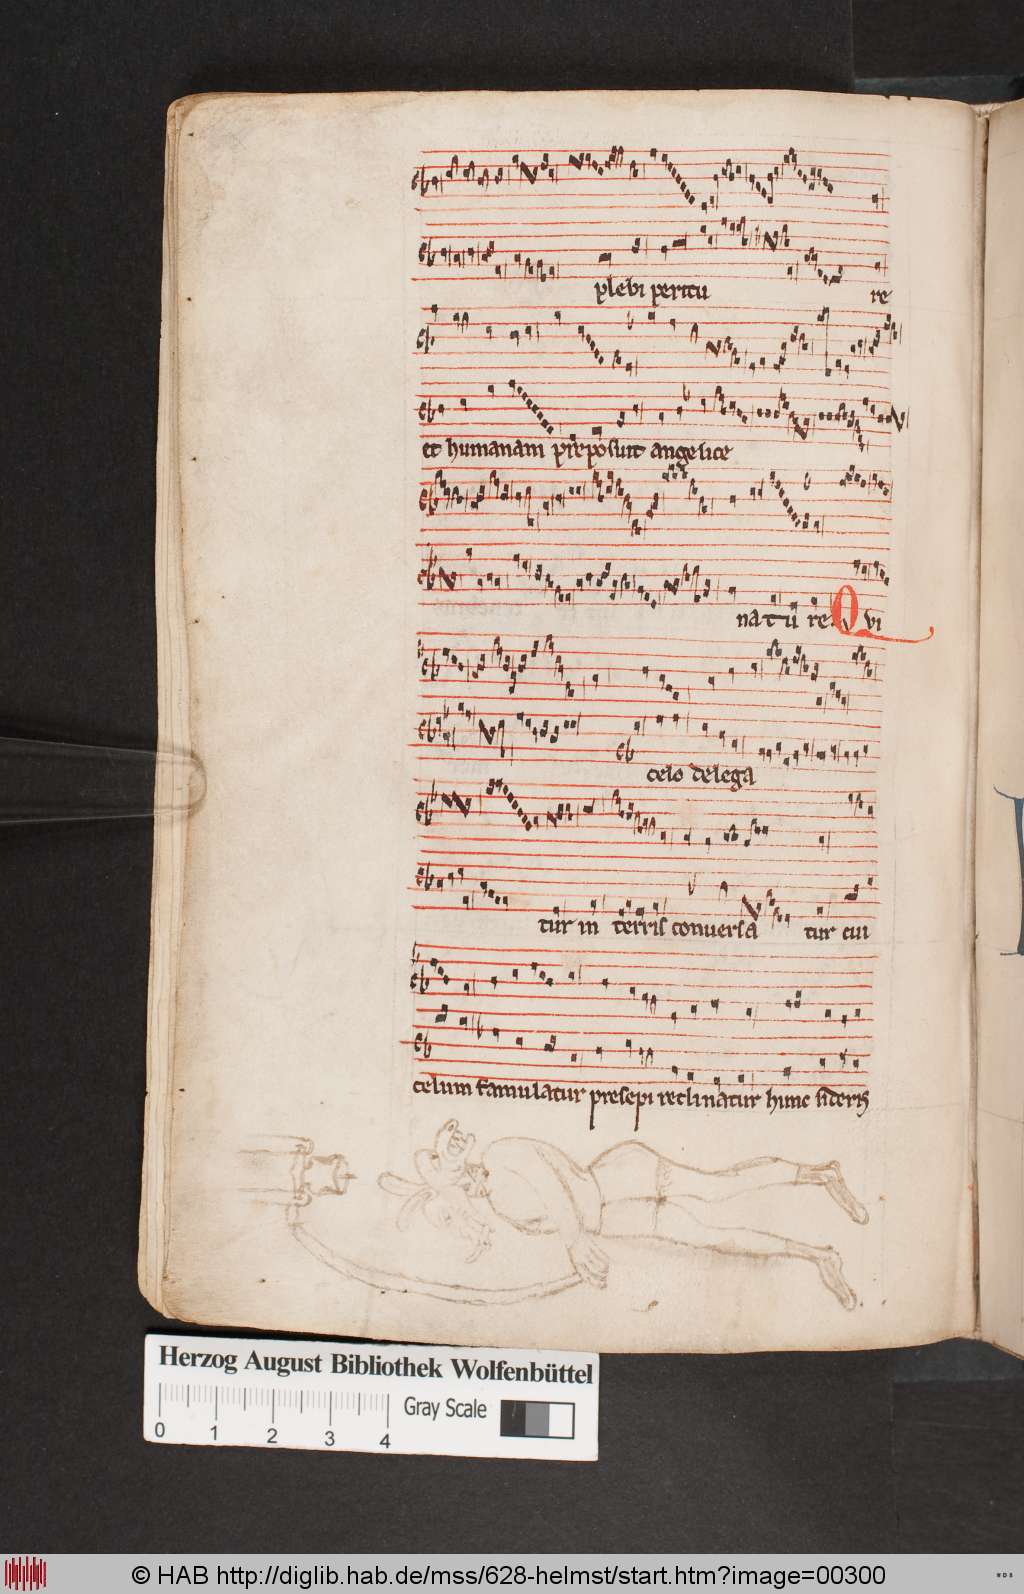 plebi peritu re
et humanam preposuit angelice
natu re. Qvi
celo delega
tur in terris conversa tur cui
celum famulatur presepi reclinatur hunc sideris
Herzog August Bibliothek Wolfenbüttel
Gray Scale
0 1 2 3 4
© HAB http://diglib.hab.de/mss/628-helmst/start.htm?image=00300